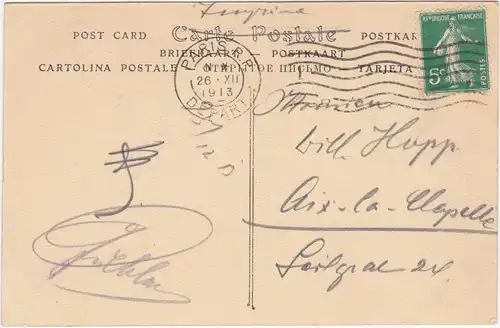 POST CARD Carte Postale POSTKAR
BRIEFKAART POSTKAART
CARTOLINA POSTALE ОТКРЫТОЕ ПИСЬМО TARJETA
PARIS R.P.
26 · XII
1913
DEPART
REPUBLIQUE FRANÇAISE
5c
POSTES
Monsieur
Will Hopp.
Aix-la-Chapelle
24